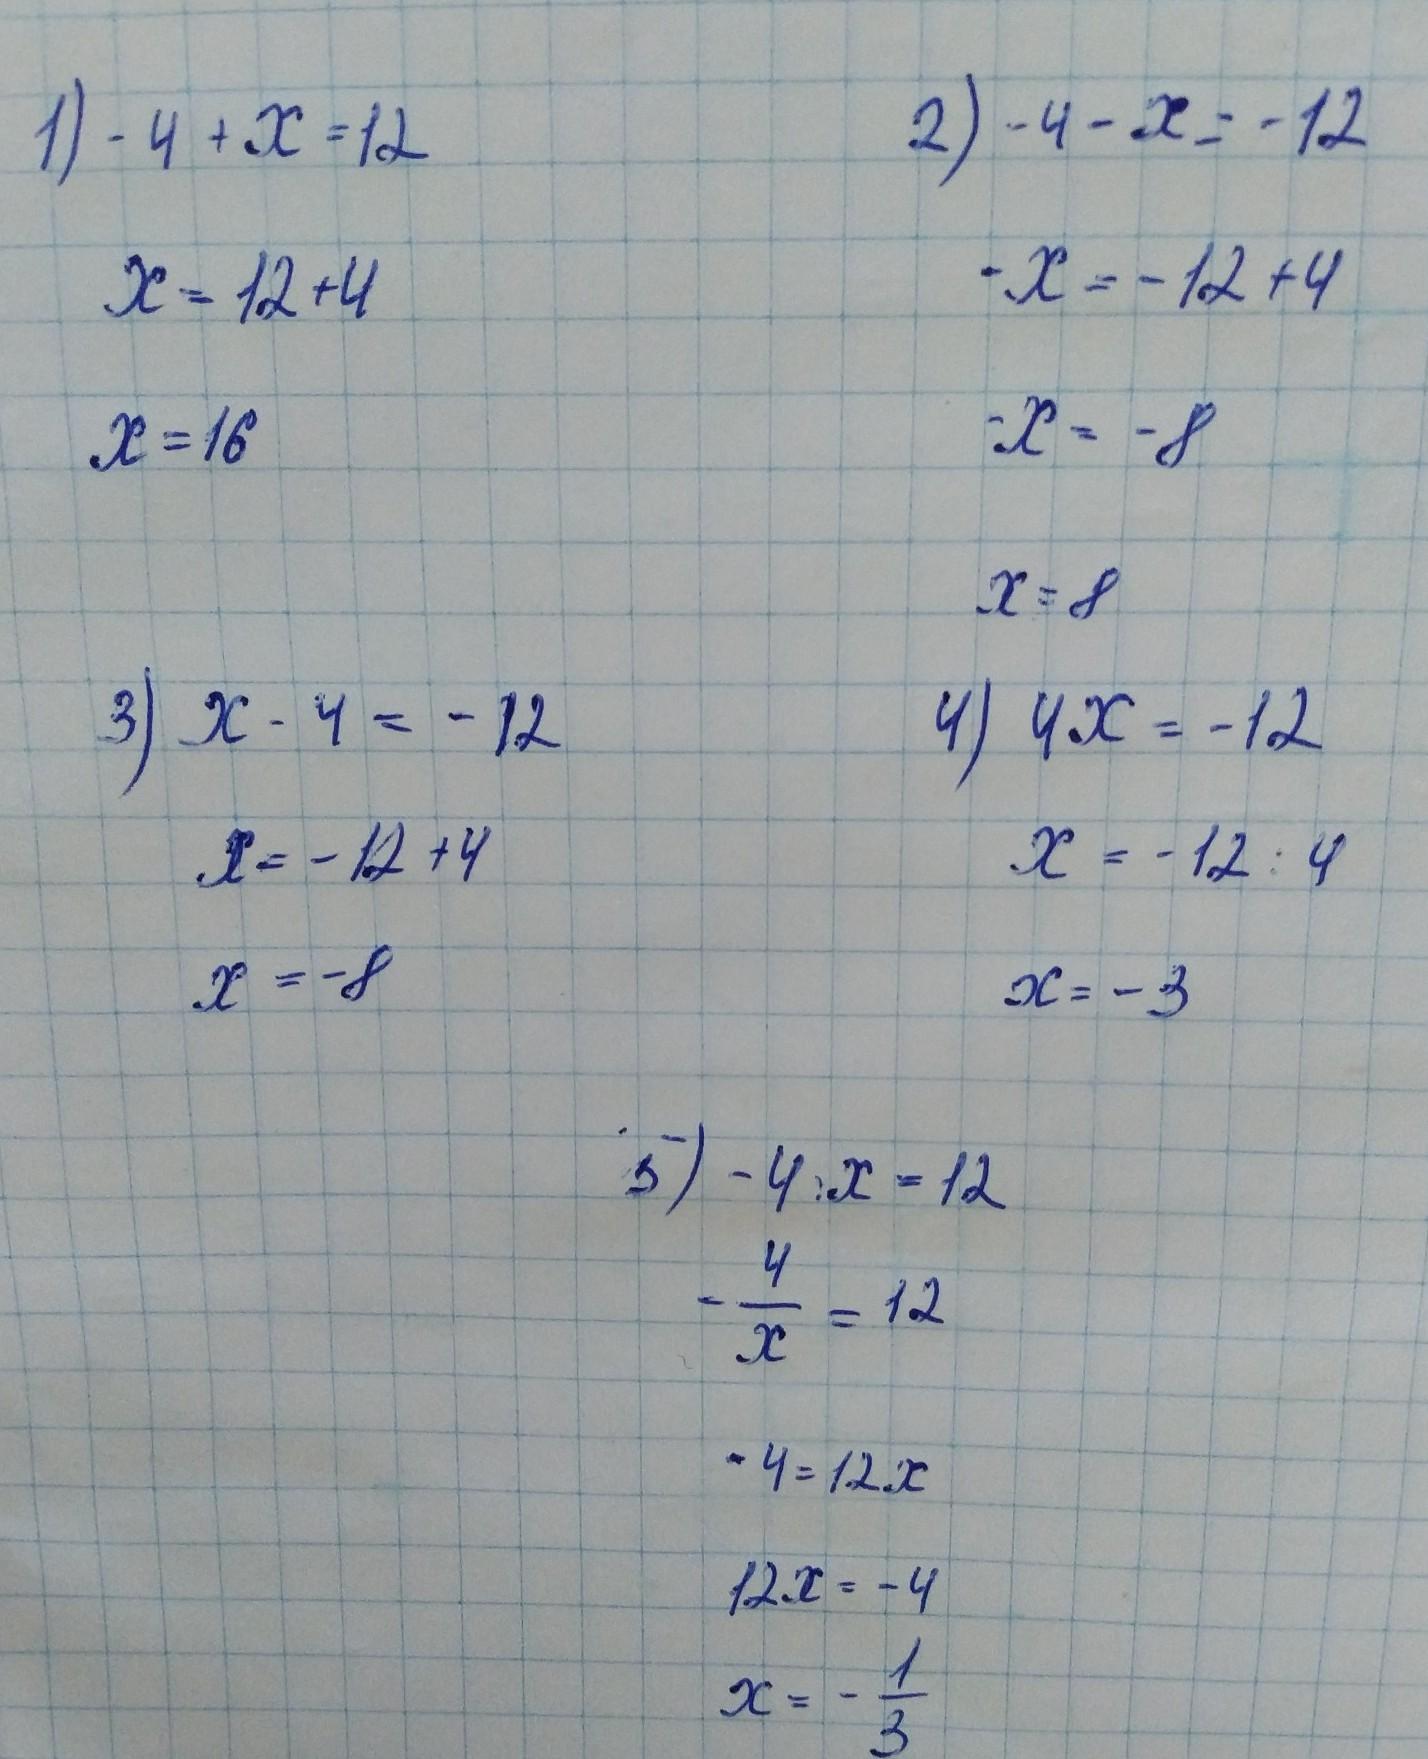 1) -4 + x = 12
x = 12 + 4
x = 16
2) -4 - x = -12
-x = -12 + 4
-x = -8
x = 8
3) x - 4 = -12
x = -12 + 4
x = -8
4) 4x = -12
x = -12 : 4
x = -3
5) -4 : x = 12
-4/x = 12
-4 = 12x
12x = -4
x = -1/3